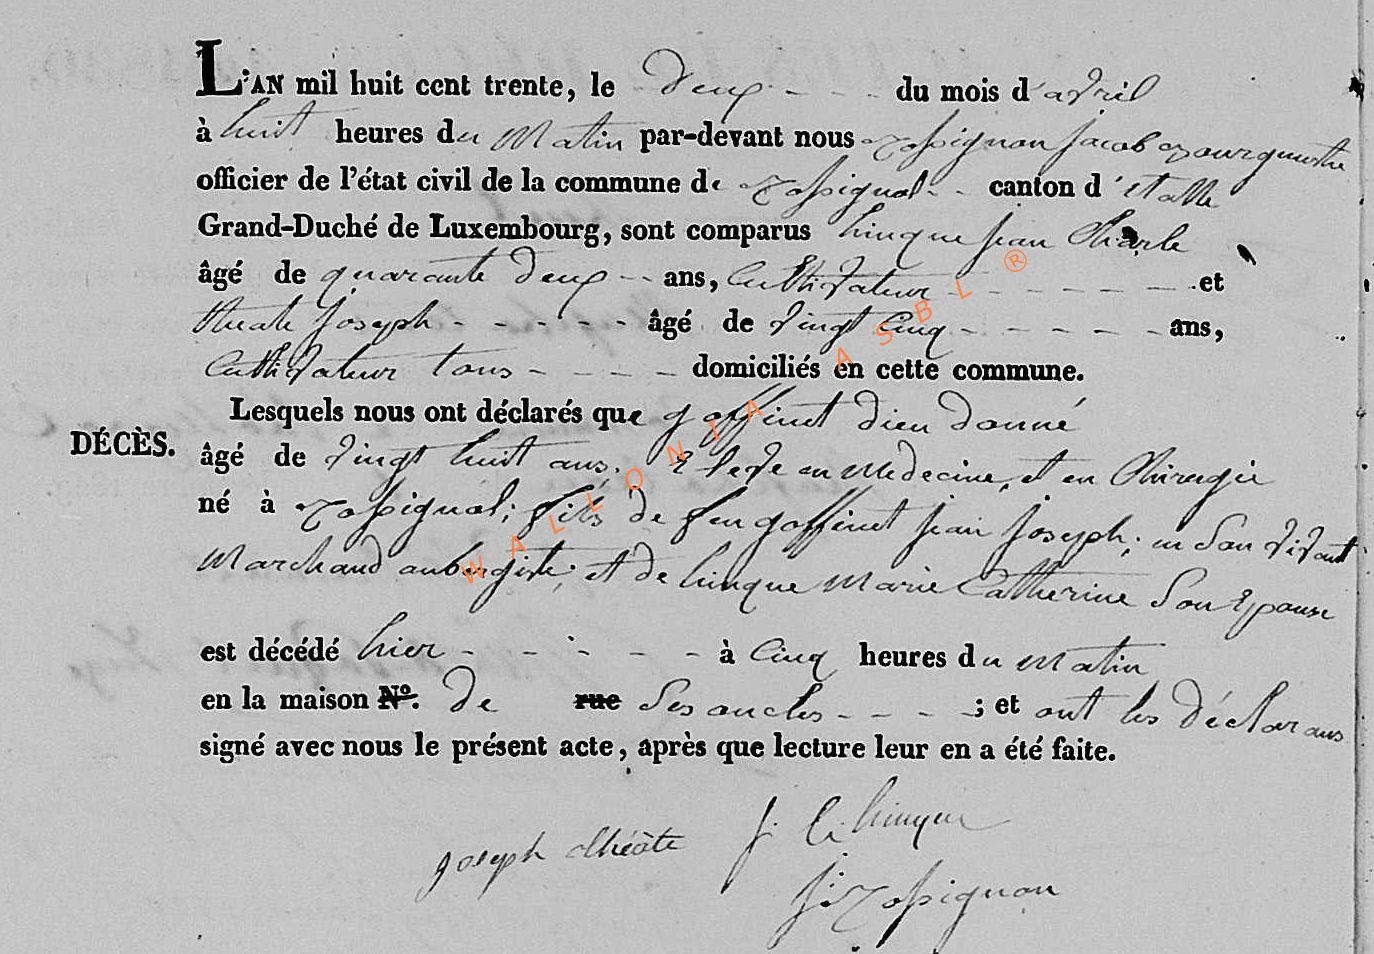 L'AN mil huit cent trente, le deux du mois d'avril
à huit heures du Matin par-devant nous Rossignon jacob Bourgmestre
officier de l'état civil de la commune de Rossignol canton d'Etalle
Grand-Duché de Luxembourg, sont comparus hinque jean Charle
âgé de quarante deux ans, Cultivateur et
theate joseph âgé de vingt Cinq ans,
Cultivateur tous domiciliés en cette commune.
Lesquels nous ont déclarés que goffinet dieu donné
DÉCÈS.
âgé de vingt huit ans, Eleve en Medecine, et en Chirurgie
né à Rossignol; fils de feu goffinet jean joseph; en Son vivant
Marchand aubergiste; et de hinque Marie Catherine Son Epouse
est décédé hier à Cinq heures du Matin
en la maison N°. de rue Ses oncles ; et ont les déclarans
signé avec nous le présent acte, après que lecture leur en a été faite.
joseph théâte j. C. hinque
j. Rossignon
WALLONIA ASBL ®